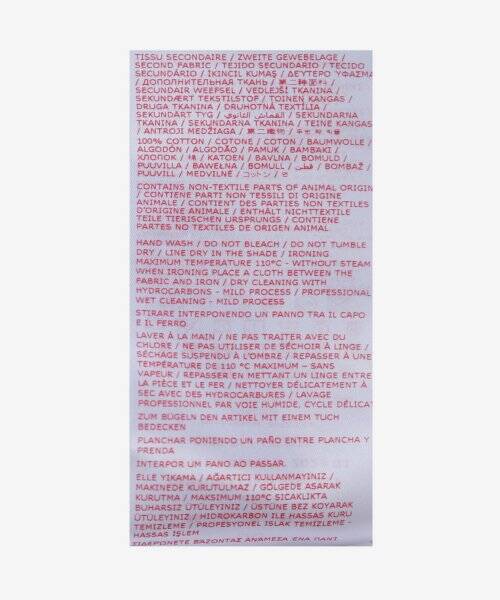 TISSU SECONDAIRE / ZWEITE GEWEBELAGE /
SECOND FABRIC / TEJIDO SECUNDARIO / TECIDO
SECUNDÁRIO / İKINCIL KUMAŞ / ΔΕΥΤΕΡΟ ΥΦΑΣΜΑ
/ ДОПОЛНИТЕЛЬНАЯ ТКАНЬ / 第二種面料 /
SECUNDAIR WEEFSEL / VEDLEJŠÍ TKANINA /
SEKUNDÆRT TEKSTILSTOF / TOINEN KANGAS /
DRUGA TKANINA / DRUHOTNÁ TEXTÍLIA /
SEKUNDÄRT TYG / القماش الثانوي / SEKUNDARNA
TKANINA / SEKUNDARNA TKANINA / TEINE KANGAS
/ ANTROJI MEDŽIAGA / 第二織物 /
100% COTTON / COTONE / COTON / BAUMWOLLE /
ALGODÓN / ALGODÃO / PAMUK / ΒΑΜΒΑΚΙ /
ХЛОПОК / 棉 / KATOEN / BAVLNA / BOMULD /
PUUVILLA / BAWEŁNA / BOMULL / قطن / BOMBAŽ /
PUUVILL / MEDVILNĖ / コットン / 면
CONTAINS NON-TEXTILE PARTS OF ANIMAL ORIGIN
/ CONTIENE PARTI NON TESSILI DI ORIGINE
ANIMALE / CONTIENT DES PARTIES NON TEXTILES
D'ORIGINE ANIMALE / ENTHÄLT NICHTTEXTILE
TEILE TIERISCHEN URSPRUNGS / CONTIENE
PARTES NO TEXTILES DE ORIGEN ANIMAL
HAND WASH / DO NOT BLEACH / DO NOT TUMBLE
DRY / LINE DRY IN THE SHADE / IRONING
MAXIMUM TEMPERATURE 110°C - WITHOUT STEAM
WHEN IRONING PLACE A CLOTH BETWEEN THE
FABRIC AND IRON / DRY CLEANING WITH
HYDROCARBONS - MILD PROCESS / PROFESSIONAL
WET CLEANING - MILD PROCESS
STIRARE INTERPONENDO UN PANNO TRA IL CAPO
E IL FERRO
LAVER À LA MAIN / NE PAS TRAITER AVEC DU
CHLORE / NE PAS UTILISER DE SÉCHOIR À LINGE /
SÉCHAGE SUSPENDU À L'OMBRE / REPASSER À UNE
TEMPÉRATURE DE 110 °C MAXIMUM – SANS
VAPEUR / REPASSER EN METTANT UN LINGE ENTRE
LA PIÈCE ET LE FER / NETTOYER DÉLICATEMENT À
SEC AVEC DES HYDROCARBURES / LAVAGE
PROFESSIONNEL PAR VOIE HUMIDE, CYCLE DÉLICAT
ZUM BÜGELN DEN ARTIKEL MIT EINEM TUCH
BEDECKEN
PLANCHAR PONIENDO UN PAÑO ENTRE PLANCHA Y
PRENDA
INTERPOR UM PANO AO PASSAR.
ELLE YIKAMA / AĞARTICI KULLANMAYINIZ /
MAKINEDE KURUTULMAZ / GÖLGEDE ASARAK
KURUTMA / MAKSIMUM 110°C SICAKLIKTA
BUHARSIZ ÜTÜLEYINIZ / ÜSTÜNE BEZ KOYARAK
ÜTÜLEYINIZ / HIDROKARBON ILE HASSAS KURU
TEMIZLEME / PROFESYONEL ISLAK TEMIZLEME -
HASSAS IŞLEM
ΣΙΔΕΡΩΝΕΤΕ ΒΑΖΟΝΤΑΣ ΑΝΑΜΕΣΑ ΕΝΑ ΠΑΝΙ